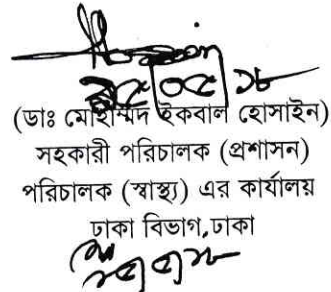 (ডাঃ মোহাম্মদ ইকবাল হোসাইন)
সহকারী পরিচালক (প্রশাসন)
পরিচালক (স্বাস্থ্য) এর কার্যালয়
ঢাকা বিভাগ,ঢাকা